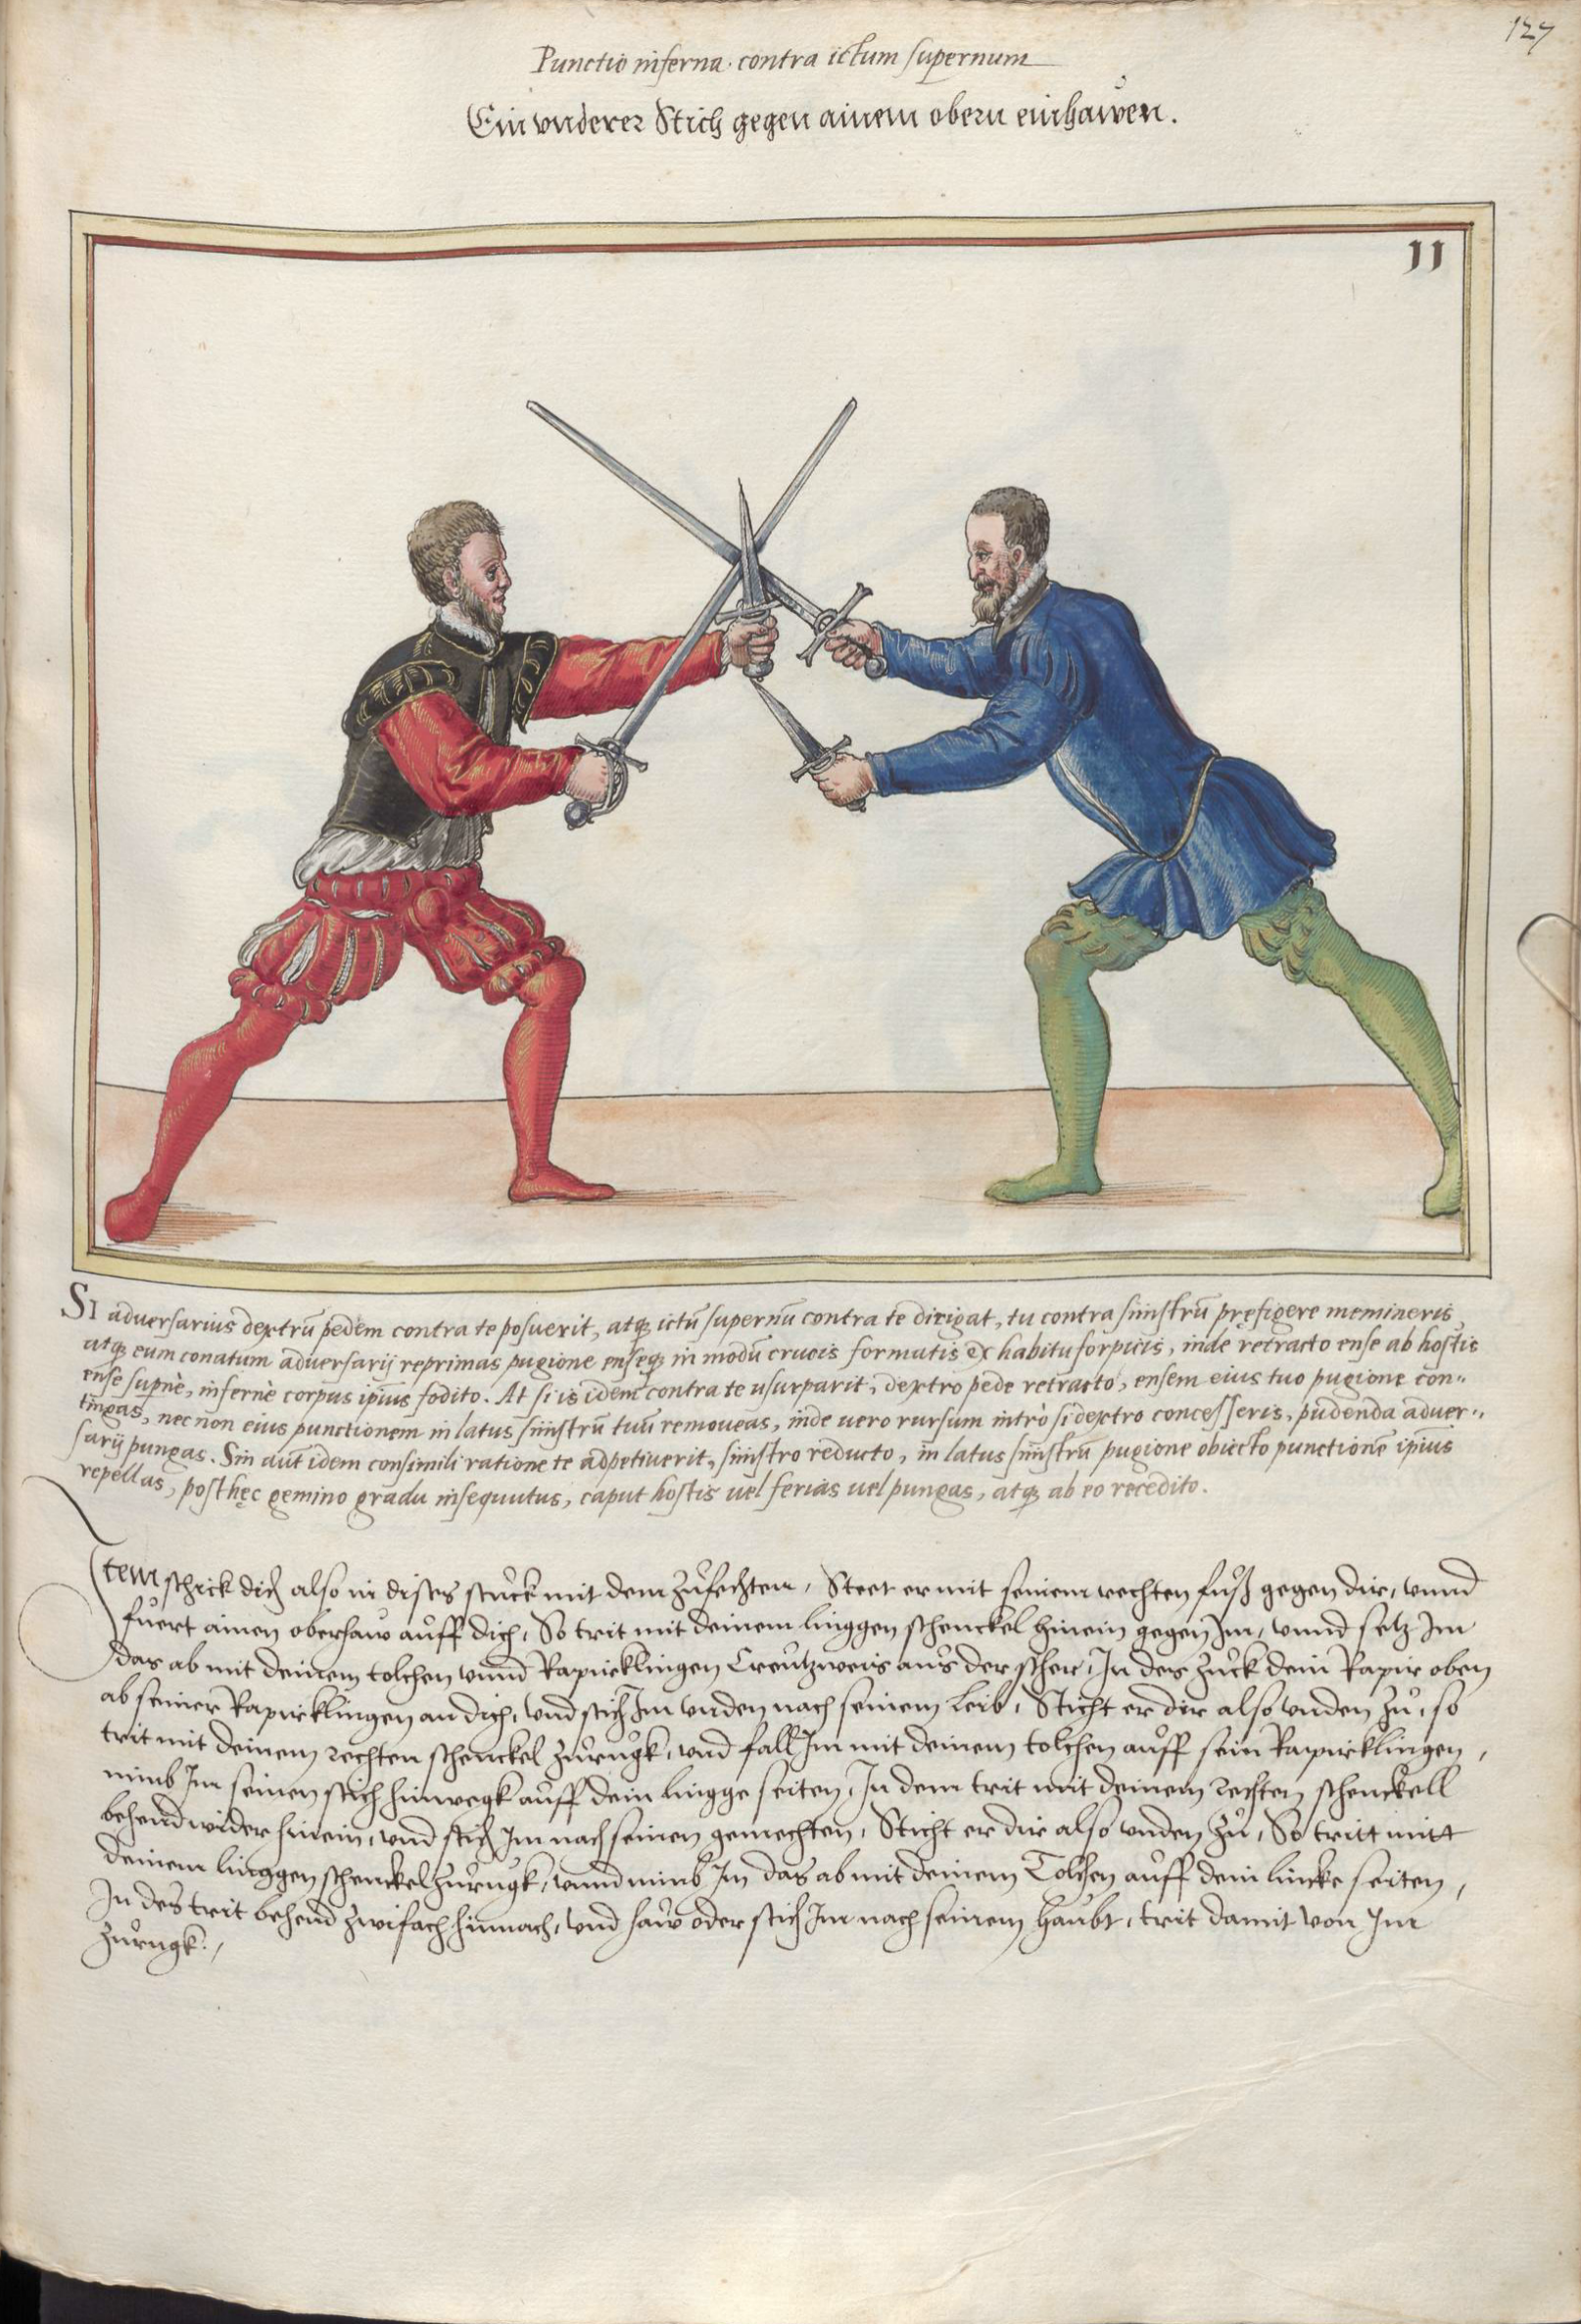 127
Punctio inferna. contra ictum supernum
Ein vnderer Stich gegen ainem obern einhawen.
11
SI adversarius dextrũ pedem contra te posuerit, atq; ictũ supernũ contra te dirigat, tu contra sinistrũ pręfigere memineris
atq; eum conatum adversarij reprimas pugione enseq; in modũ crucis formatis ex habitu forpicis, inde retracto ense ab hostis
ense supnè, infernè corpus ipius fodito. At si is idem contra te usurparit, dextro pede retracto, ensem eius tuo pugione con=
tingas, nec non eius punctionem in latus sinistrũ tuũ removeas, inde vero rursum intrò si dextro concesseris, pudenda adver=
sarij pungas. Sin aut idem consimili ratione te adpetiverit, sinistro reducto, in latus sinistrũ pugione obiecto punctionẽ ipius
repellas, posthęc gemino gradu insequutus, caput hostis vel ferias vel pungas, atq; ab eo recedito.
Item schick dich also in dises stuck mit dem zůfechten, Steet er mit seinem rechten fůß gegen dir, vnnd
fůert ainen oberhaw auff dich, So trit mit deinem linggen schenckel hinein gegen Im, vnnd setz Im
das ab mit deinem tolchen vnnd Rapierklingen Creutzweis aus der scher, In des zuck dein Rapir oben
ab seiner Rapierklingen an dich, vnd stich Im vnden nach seinem Leib, Sticht er dir also vnden zů, so
trit mit deinem rechten schenckel zůrugk, vnd fall Im mit deinem tolchen auff sein Rapierklingen,
nimb Im seinen stich hinwegk auff dein lingge seiten, In dem trit mit deinem rechten schenckell
behend wider hinein, vnd stich Im nach seinen gemechten, Sticht er dir also vnden zů, So tritt mitt
deinem linggen schenckel zůrugk, vnnd nimb Im das ab mit deinem Tolchen auff dein lincke seiten,
In des trit behend zwifach hinnach, vnd haw oder stich Im nach seinem haubt, trit damit von Im
zůrugk.,